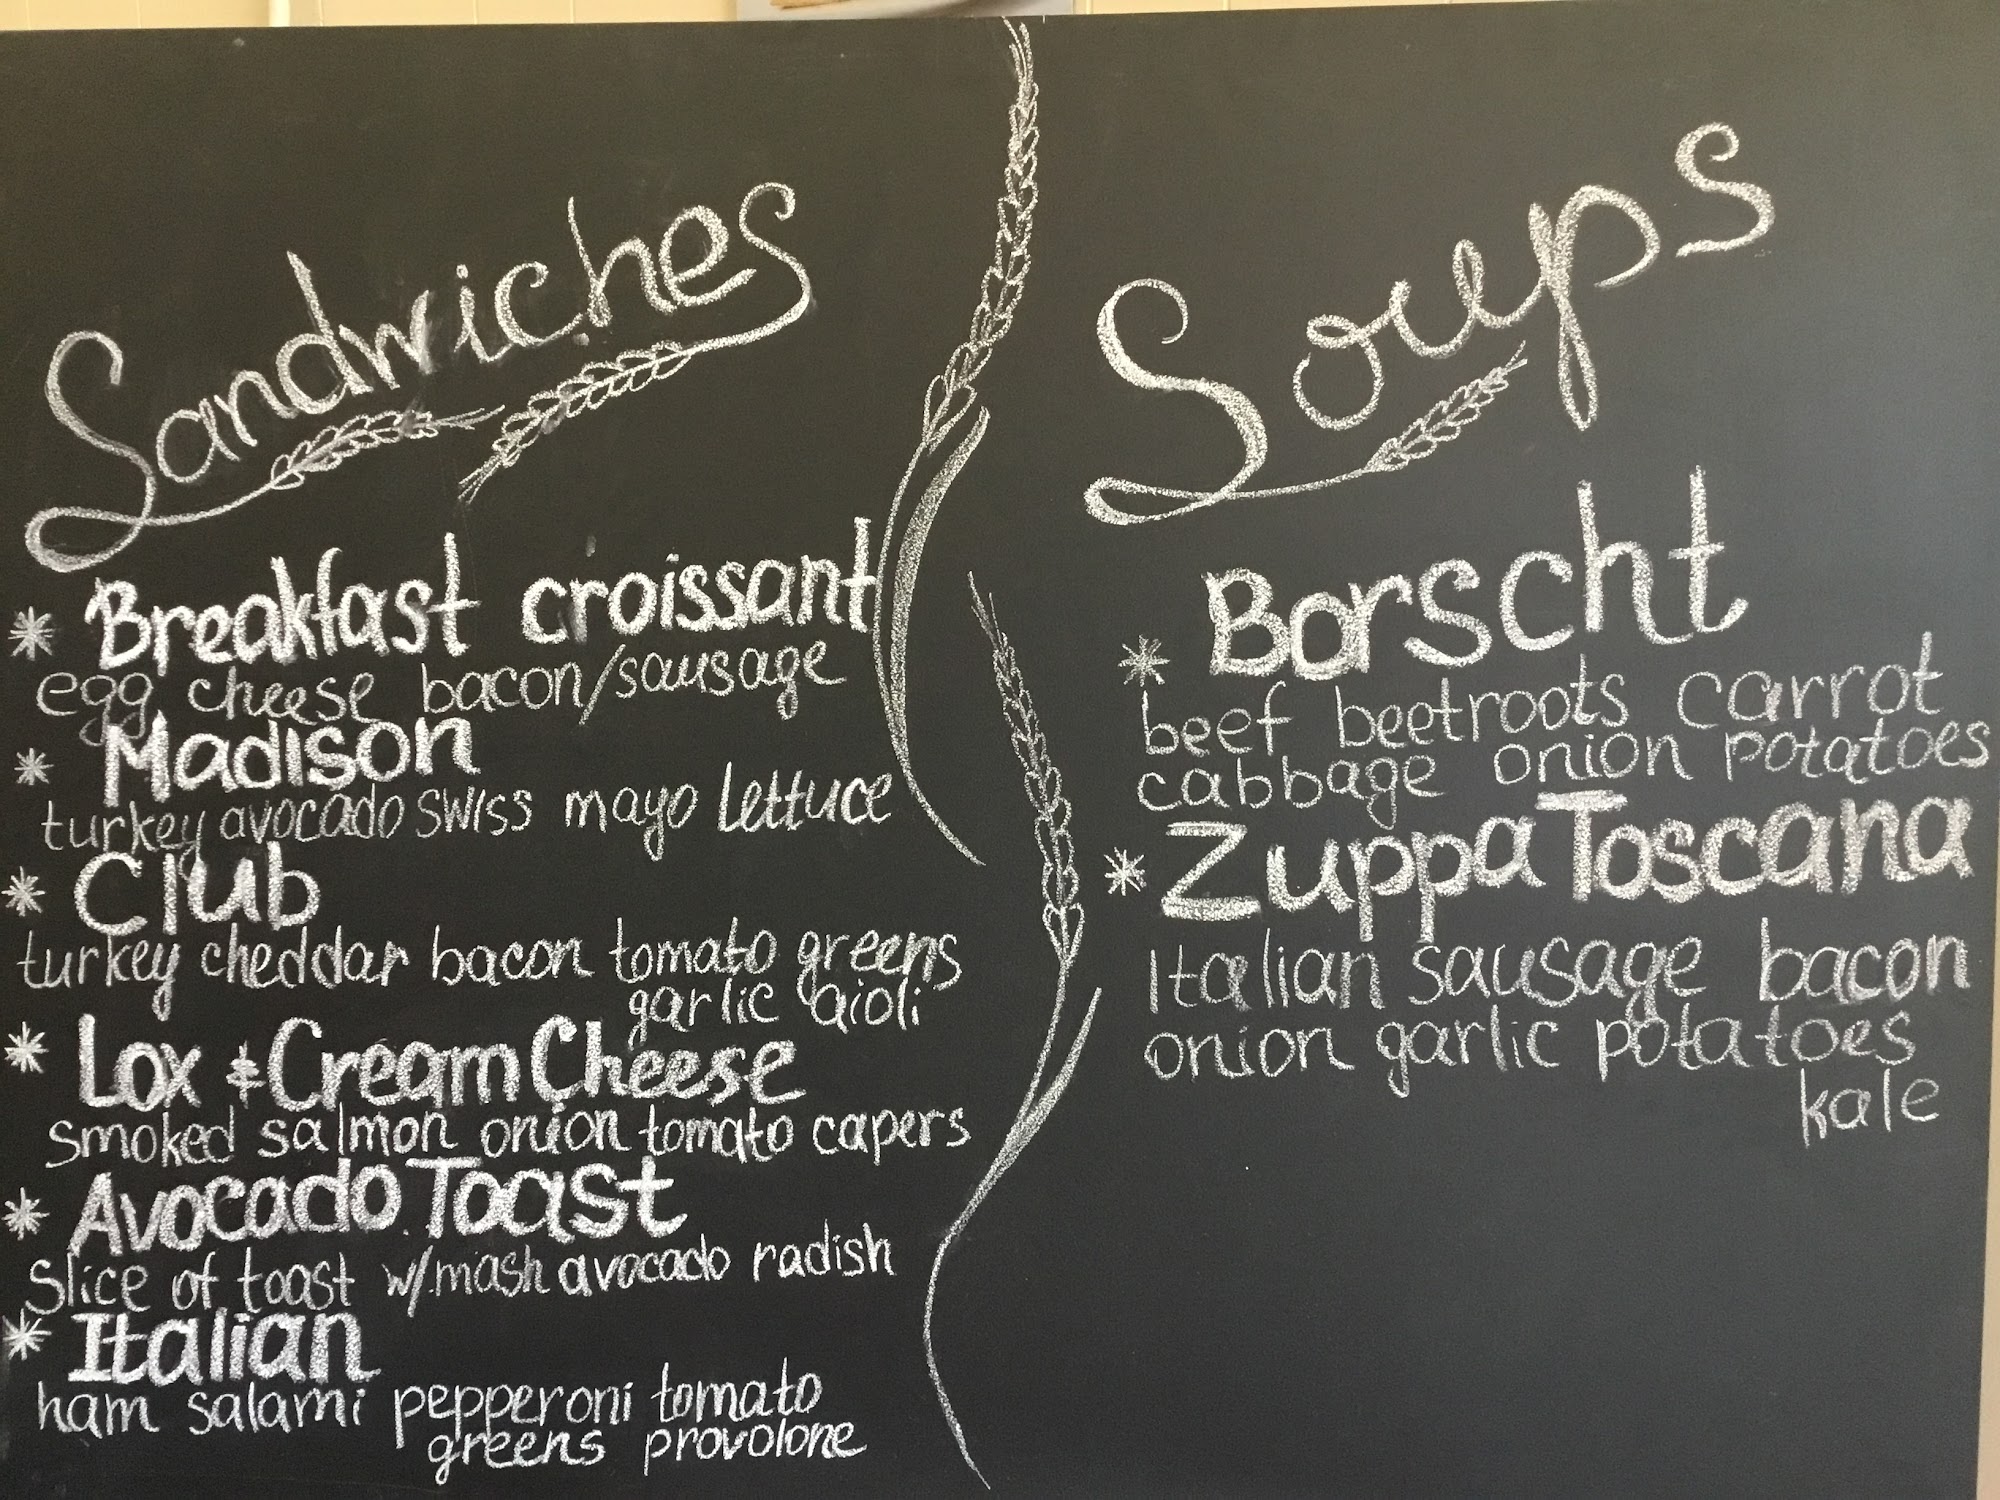 Sandwiches
* Breakfast croissant
egg cheese bacon/sausage
* Madison
turkey avocado swiss mayo lettuce
* Club
turkey cheddar bacon tomato greens
garlic aioli
* Lox & Cream Cheese
smoked salmon onion tomato capers
* Avocado Toast
slice of toast w/mash avocado radish
* Italian
ham salami pepperoni tomato
greens provolone
Soups
* Borscht
beef beetroots carrot
cabbage onion potatoes
* Zuppa Toscana
Italian sausage bacon
onion garlic potatoes
kale